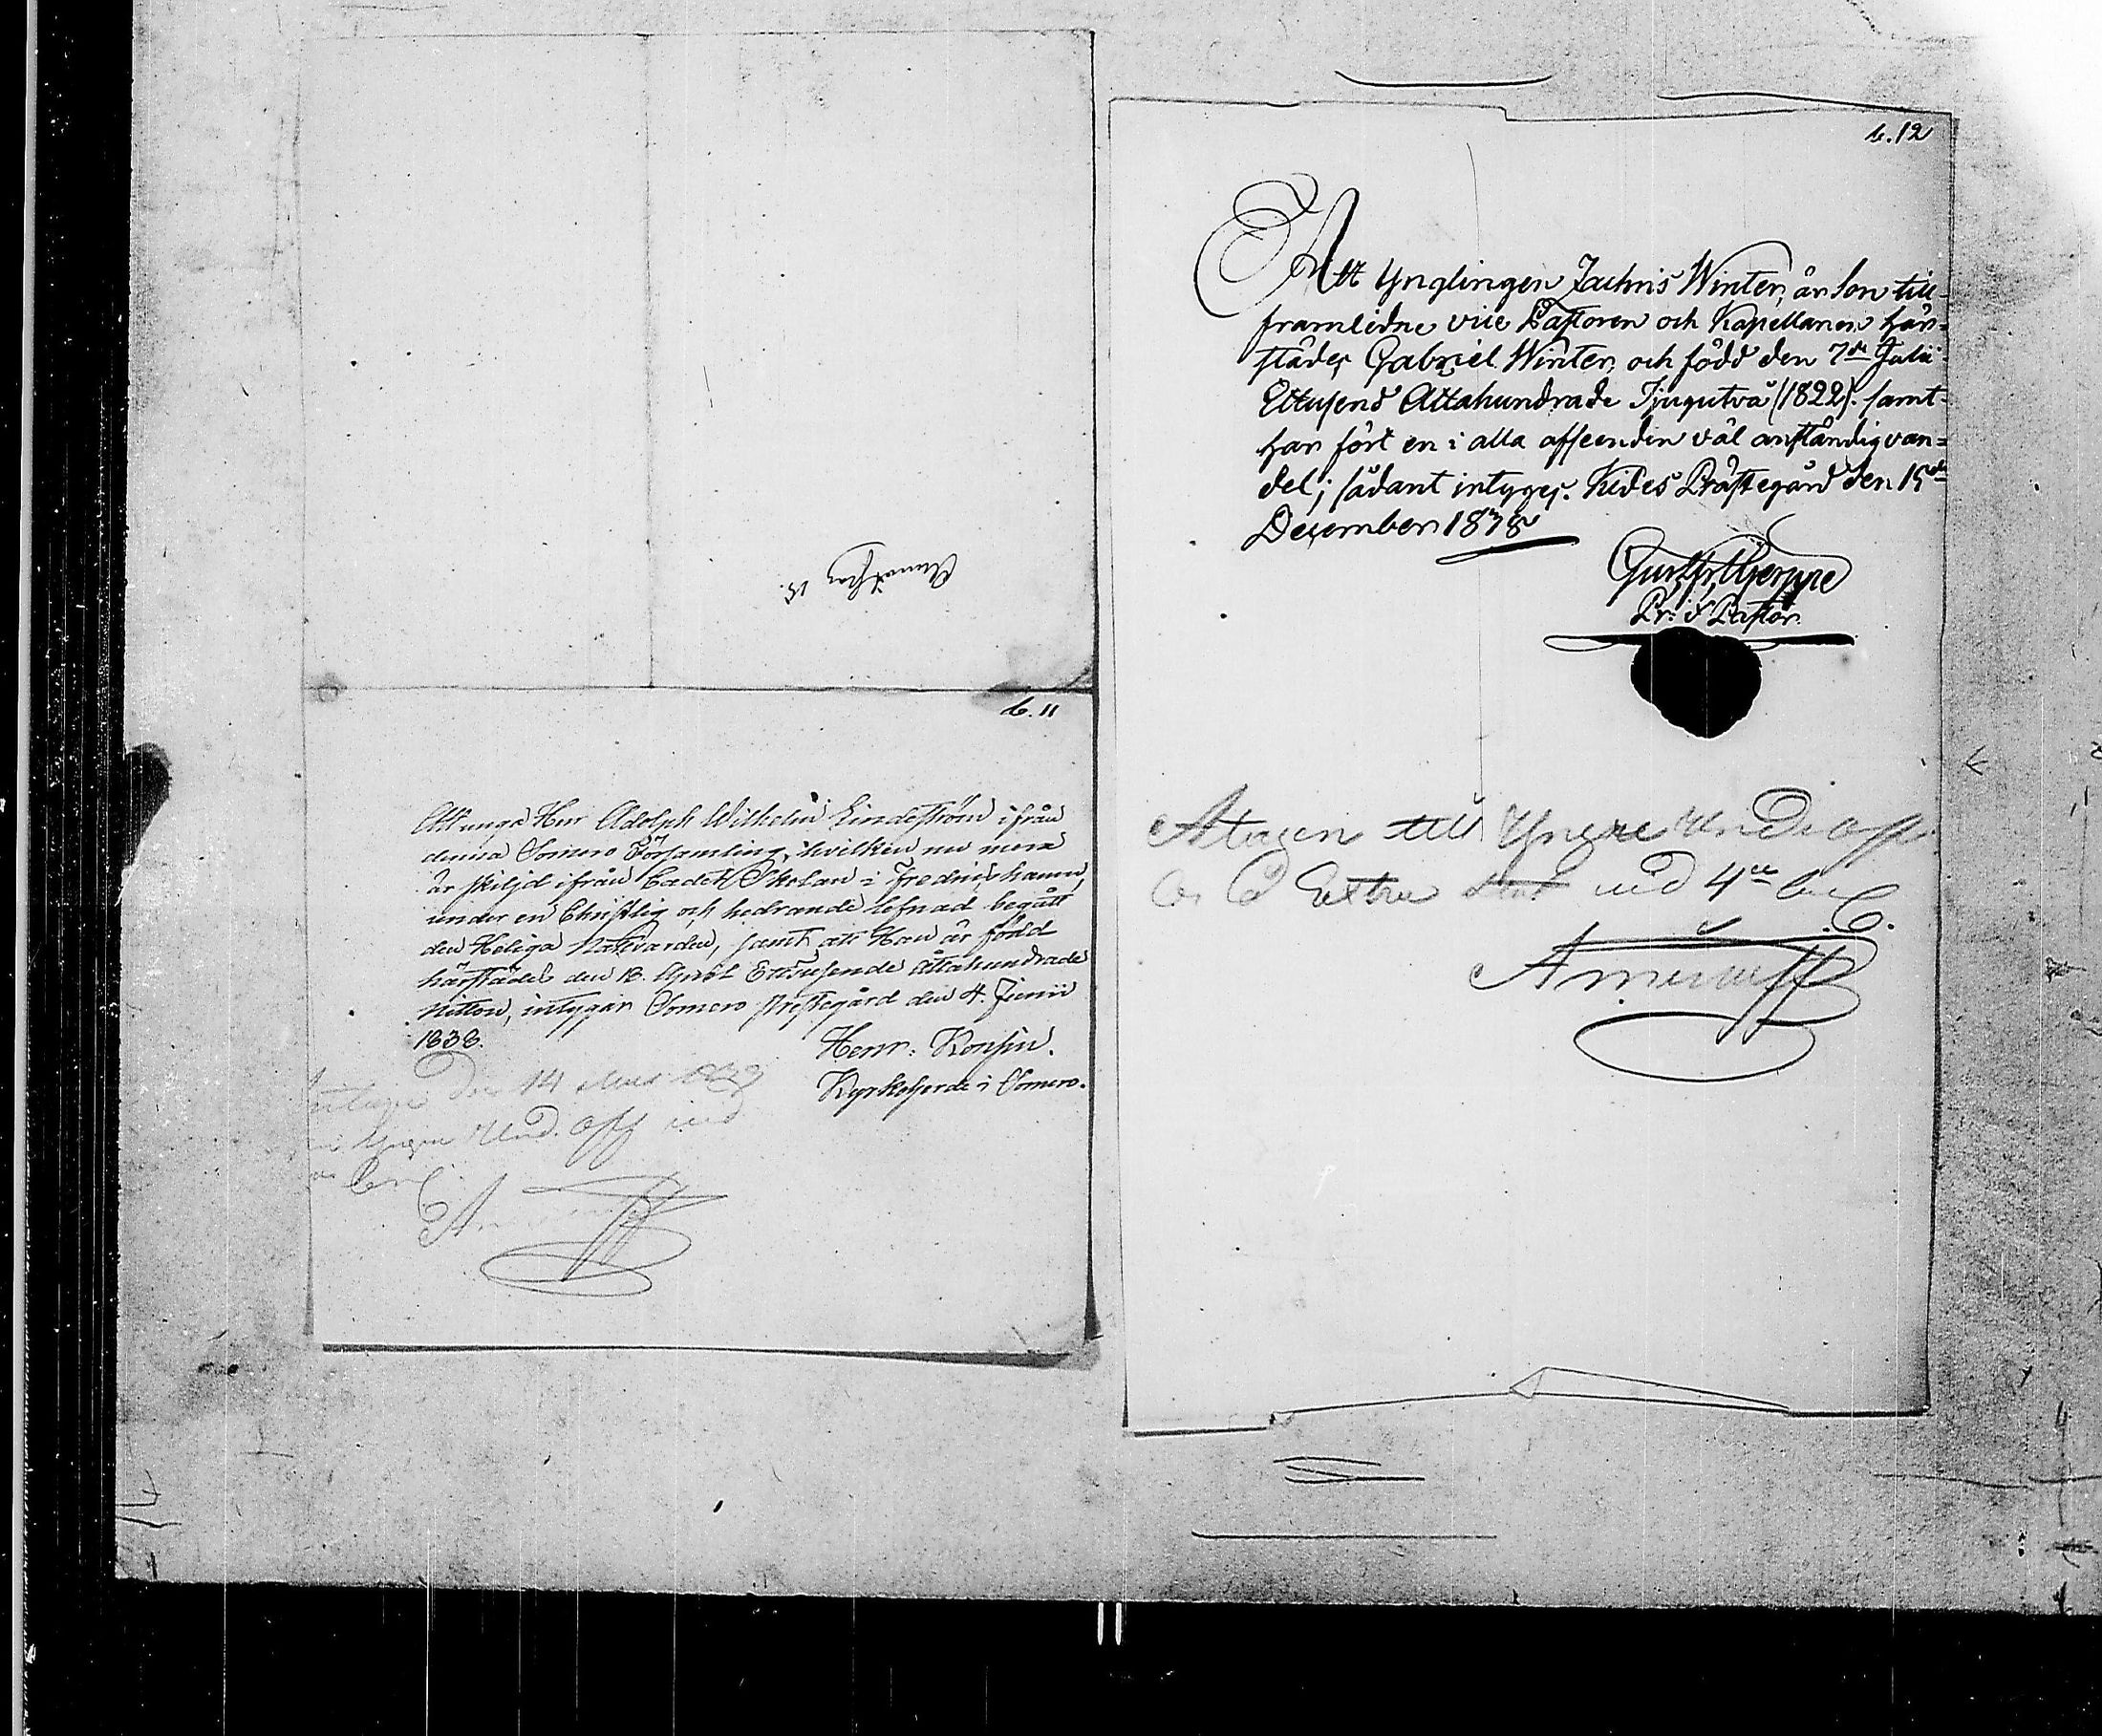 b. 11
Att unga Herr Adolph Wilhelm Lindeström ifrån
denna Somero Församling, hvilken nu mera
är skiljd ifrån Cadett Skolan i Fredrichshamn,
under en Christlig och hedrande lefnad begått
den Heliga Nattvarden, samt att Han är född
härstädes den 18. April Ettusende åttahundrade
Nitton, intygar Somero Prestegård den 4. Junii
1838.
Henr: Konsin.
Kyrkoherde i Somero.
den 14
Yngre Und. Off vid
b. 12
Att Ynglingen Zachris Winter, är Son till
framledne vice Pastoren och Kapellanen här-
städes Gabriel Winter, och född den 7de Julii
Ettusend Åttahundrade Tjugutvå (1822). samt
har fört en i alla afseenden väl anständig van=
del; sådant intygas. Kides Prästegård den 15de
December 1838
Pr: i Pastor.
Antagen till Yngre Und: Off.
Extra vid 4de